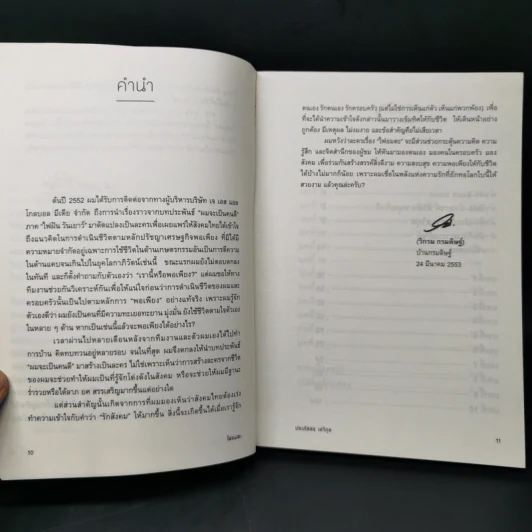 คำนำ
ต้นปี 2552 ผมได้รับการติดต่อจากทางผู้บริหารบริษัท เจ เอส แอล
โกลบอล มีเดีย จำกัด ถึงการนำเรื่องราวจากบทประพันธ์ "ผมจะเป็นคนดี"
ภาค "ไฟฝัน วันเยาว์" มาดัดแปลงเป็นละครเพื่อเผยแพร่ให้สังคมไทยได้เข้าใจ
ถึงแนวคิดในการดำเนินชีวิตตามหลักปรัชญาเศรษฐกิจพอเพียง ที่มิได้มี
ความหมายจำกัดอยู่เฉพาะการใช้ชีวิตในด้านเกษตรกรรมอันเป็นการตีความ
ในด้านแคบจนเกินไปในยุคโลกาภิวัตน์เช่นนี้ ขณะแรกผมยังไม่ตอบตกลง
ในทันที และก็ตั้งคำถามกับตัวเองว่า "เรานี้หรือพอเพียง?" แต่ผมขอให้ทาง
ทีมงานช่วยกันวิเคราะห์กันเพื่อให้แน่ใจก่อนว่าการดำเนินชีวิตของผมและ
ครอบครัวนั้นเป็นไปตามหลักการ "พอเพียง" อย่างแท้จริง เพราะผมรู้จัก
ตัวเองดีว่า ผมยังเป็นคนที่มีความทะเยอทะยาน มุ่งมั่น ยังใช้ชีวิตตามใจตัวเอง
ในหลาย ๆ ด้าน หากเป็นเช่นนี้แล้วจะพอเพียงได้อย่างไร?
เวลาผ่านไปหลายเดือนหลังจากทีมงานและตัวผมเองได้ไปทำ
การบ้าน คิดทบทวนอยู่หลายรอบ จนในที่สุด ผมจึงตกลงให้นำบทประพันธ์
"ผมจะเป็นคนดี" มาสร้างเป็นละคร ไม่ใช่เพราะหวังว่าการสร้างละครจากชีวิต
ของผมจะช่วยทำให้ผมเป็นที่รู้จักโด่งดังในสังคม หรือจะช่วยให้ผมมีฐานะ
ร่ำรวยหรือได้ลาภ ยศ สรรเสริญมากขึ้นแต่อย่างใด
แต่ส่วนสำคัญนั้นเกิดจากการที่ผมมองเห็นว่าสังคมไทยต้องเร่ง
ทำความเข้าใจกับคำว่า "รักสังคม" ให้มากขึ้น สิ่งนี้จะเกิดขึ้นได้เมื่อเรารู้จัก
10
ไฟอมตะ
ตนเอง รักตนเอง รักครอบครัว (แต่ไม่ใช่การเห็นแก่ตัว เห็นแก่พวกพ้อง) เพื่อ
ที่จะได้นำความเข้าใจดังกล่าวนั้นมาวางเข็มทิศให้กับชีวิต ให้เดินหน้าอย่าง
ถูกต้อง มีเหตุผล ไม่งมงาย และข้อสำคัญคือไม่เสียเวลา
ผมหวังว่าละครเรื่อง "ไฟอมตะ" จะมีส่วนช่วยกระตุ้นความคิด ความ
รู้สึก และจิตสำนึกของผู้ชม ให้หันมามองตนเอง มองคนในครอบครัว มอง
สังคม เพื่อร่วมกันสร้างสรรค์สิ่งดีงาม ความสงบสุข ความพอเพียงให้กับชีวิต
ได้บ้างไม่มากก็น้อย เพราะผมเชื่อในพลังแห่งความรักที่ยังคงโลกใบนี้ให้
สวยงาม แล้วคุณล่ะครับ?
(วิกรม กรมดิษฐ์)
บ้านกรมดิษฐ์
24 มีนาคม 2553
11